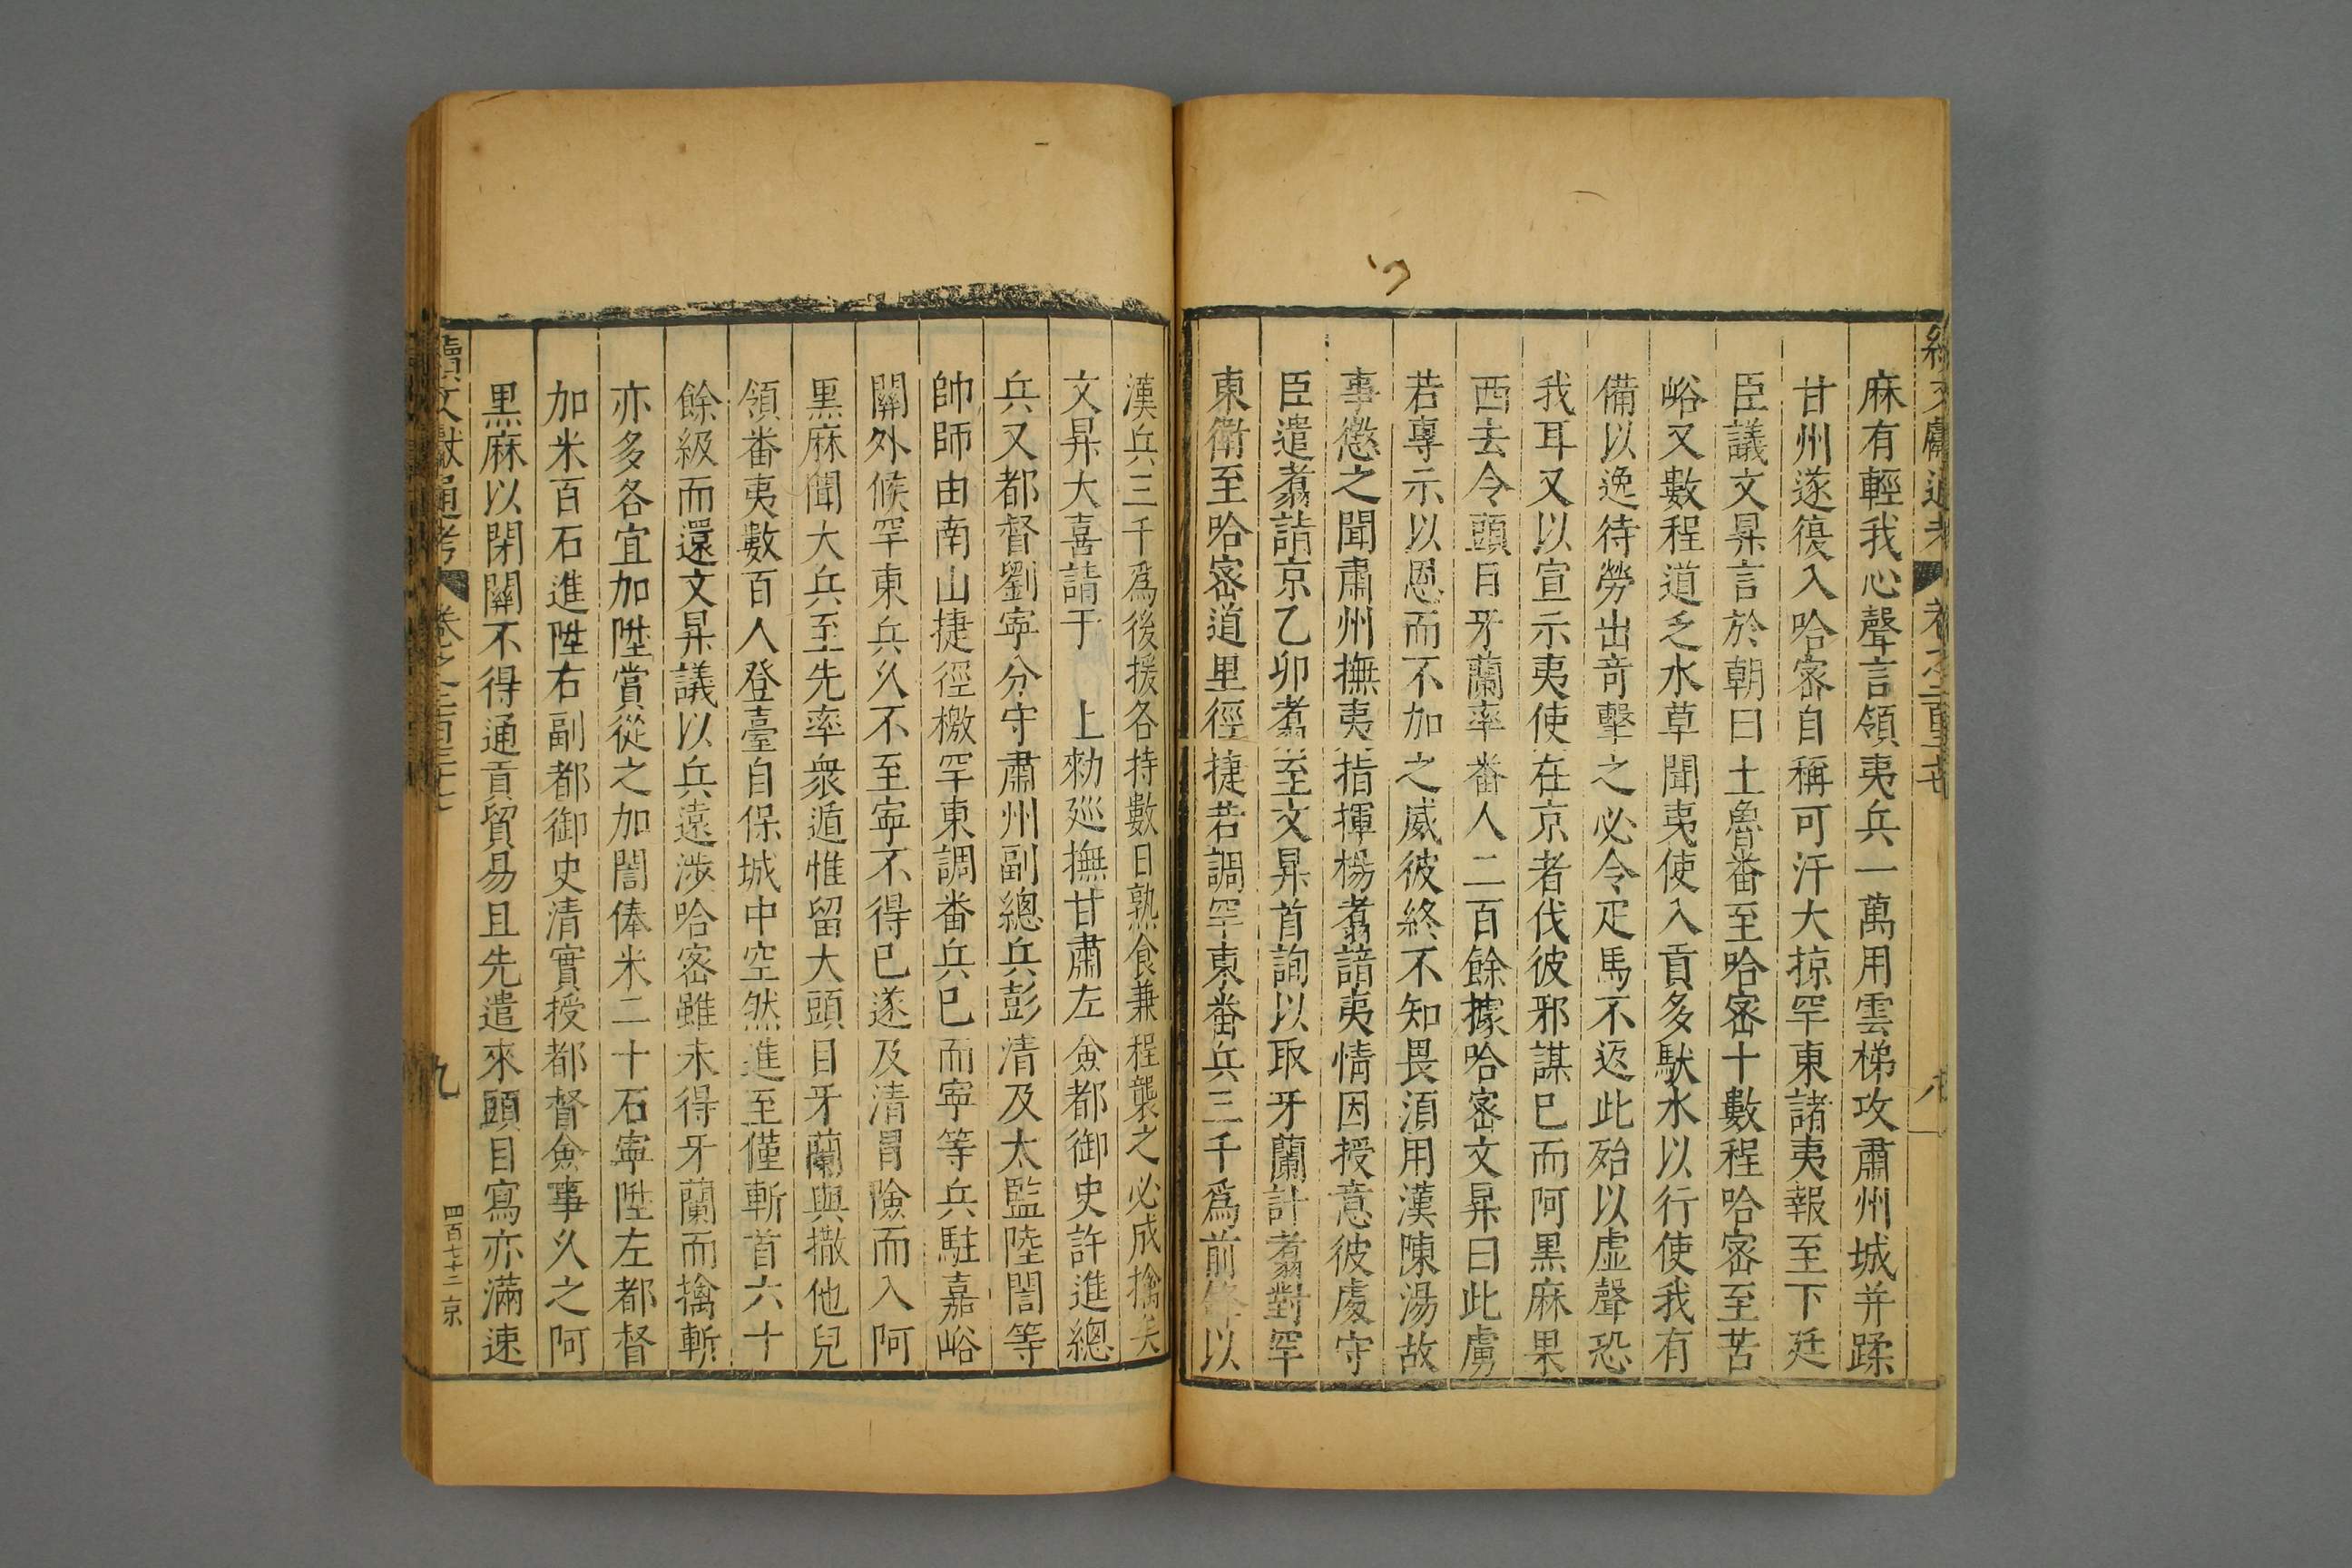 麻有輕我心聲言領夷兵一萬用雲梯攻肅州城并蹂
甘州遂復入哈密自稱可汗大掠罕東諸夷報至下廷
臣議文昇言於朝曰土魯番至哈密十數程哈密至苦
峪又數程道乏水草聞夷使入貢多馱水以行使我有
備以逸待勞出竒擊之必令疋馬不返此殆以虚聲恐
我耳又以宣示夷使在京者伐彼邪謀巳而阿黒麻果
西去令頭目牙蘭率番人二百餘據哈密文昇曰此虜
若專示以恩而不加之威彼終不知畏湏用漢陳湯故
事懲之聞肅州撫夷指揮楊翥諳夷情因授意彼處守
臣遣翥詣京乙卯翥至文昇首詢以取牙蘭計翥對罕
東衛至哈密道里徑捷若調罕東番兵三千爲前鋒以
漢兵三千爲後援各持數日熟食兼程襲之必成擒矣
文昇大喜請于　上勑廵撫甘肅左僉都御史許進總
兵又都督劉寧分守肅州副總兵彭清及太監陸誾等
帥師由南山捷徑檄罕東調番兵巳而寧等兵駐嘉峪
關外候罕東兵乆不至寧不得巳遂及清冒險而入阿
黒麻聞大兵至先率衆遁惟留大頭目牙蘭與撒他兒
領番夷數百人登臺自保城中空然進至僅斬首六十
餘級而還文昇議以兵遠渉哈密雖未得牙蘭而擒斬
亦多各宜加陞賞從之加誾俸米二十石寧陞左都督
加米百石進陞右副都御史清實授都督僉事乆之阿
黒麻以閉關不得通貢貿易且先遣來頭目寫亦滿速
續文獻通考
九
四百七十二 京